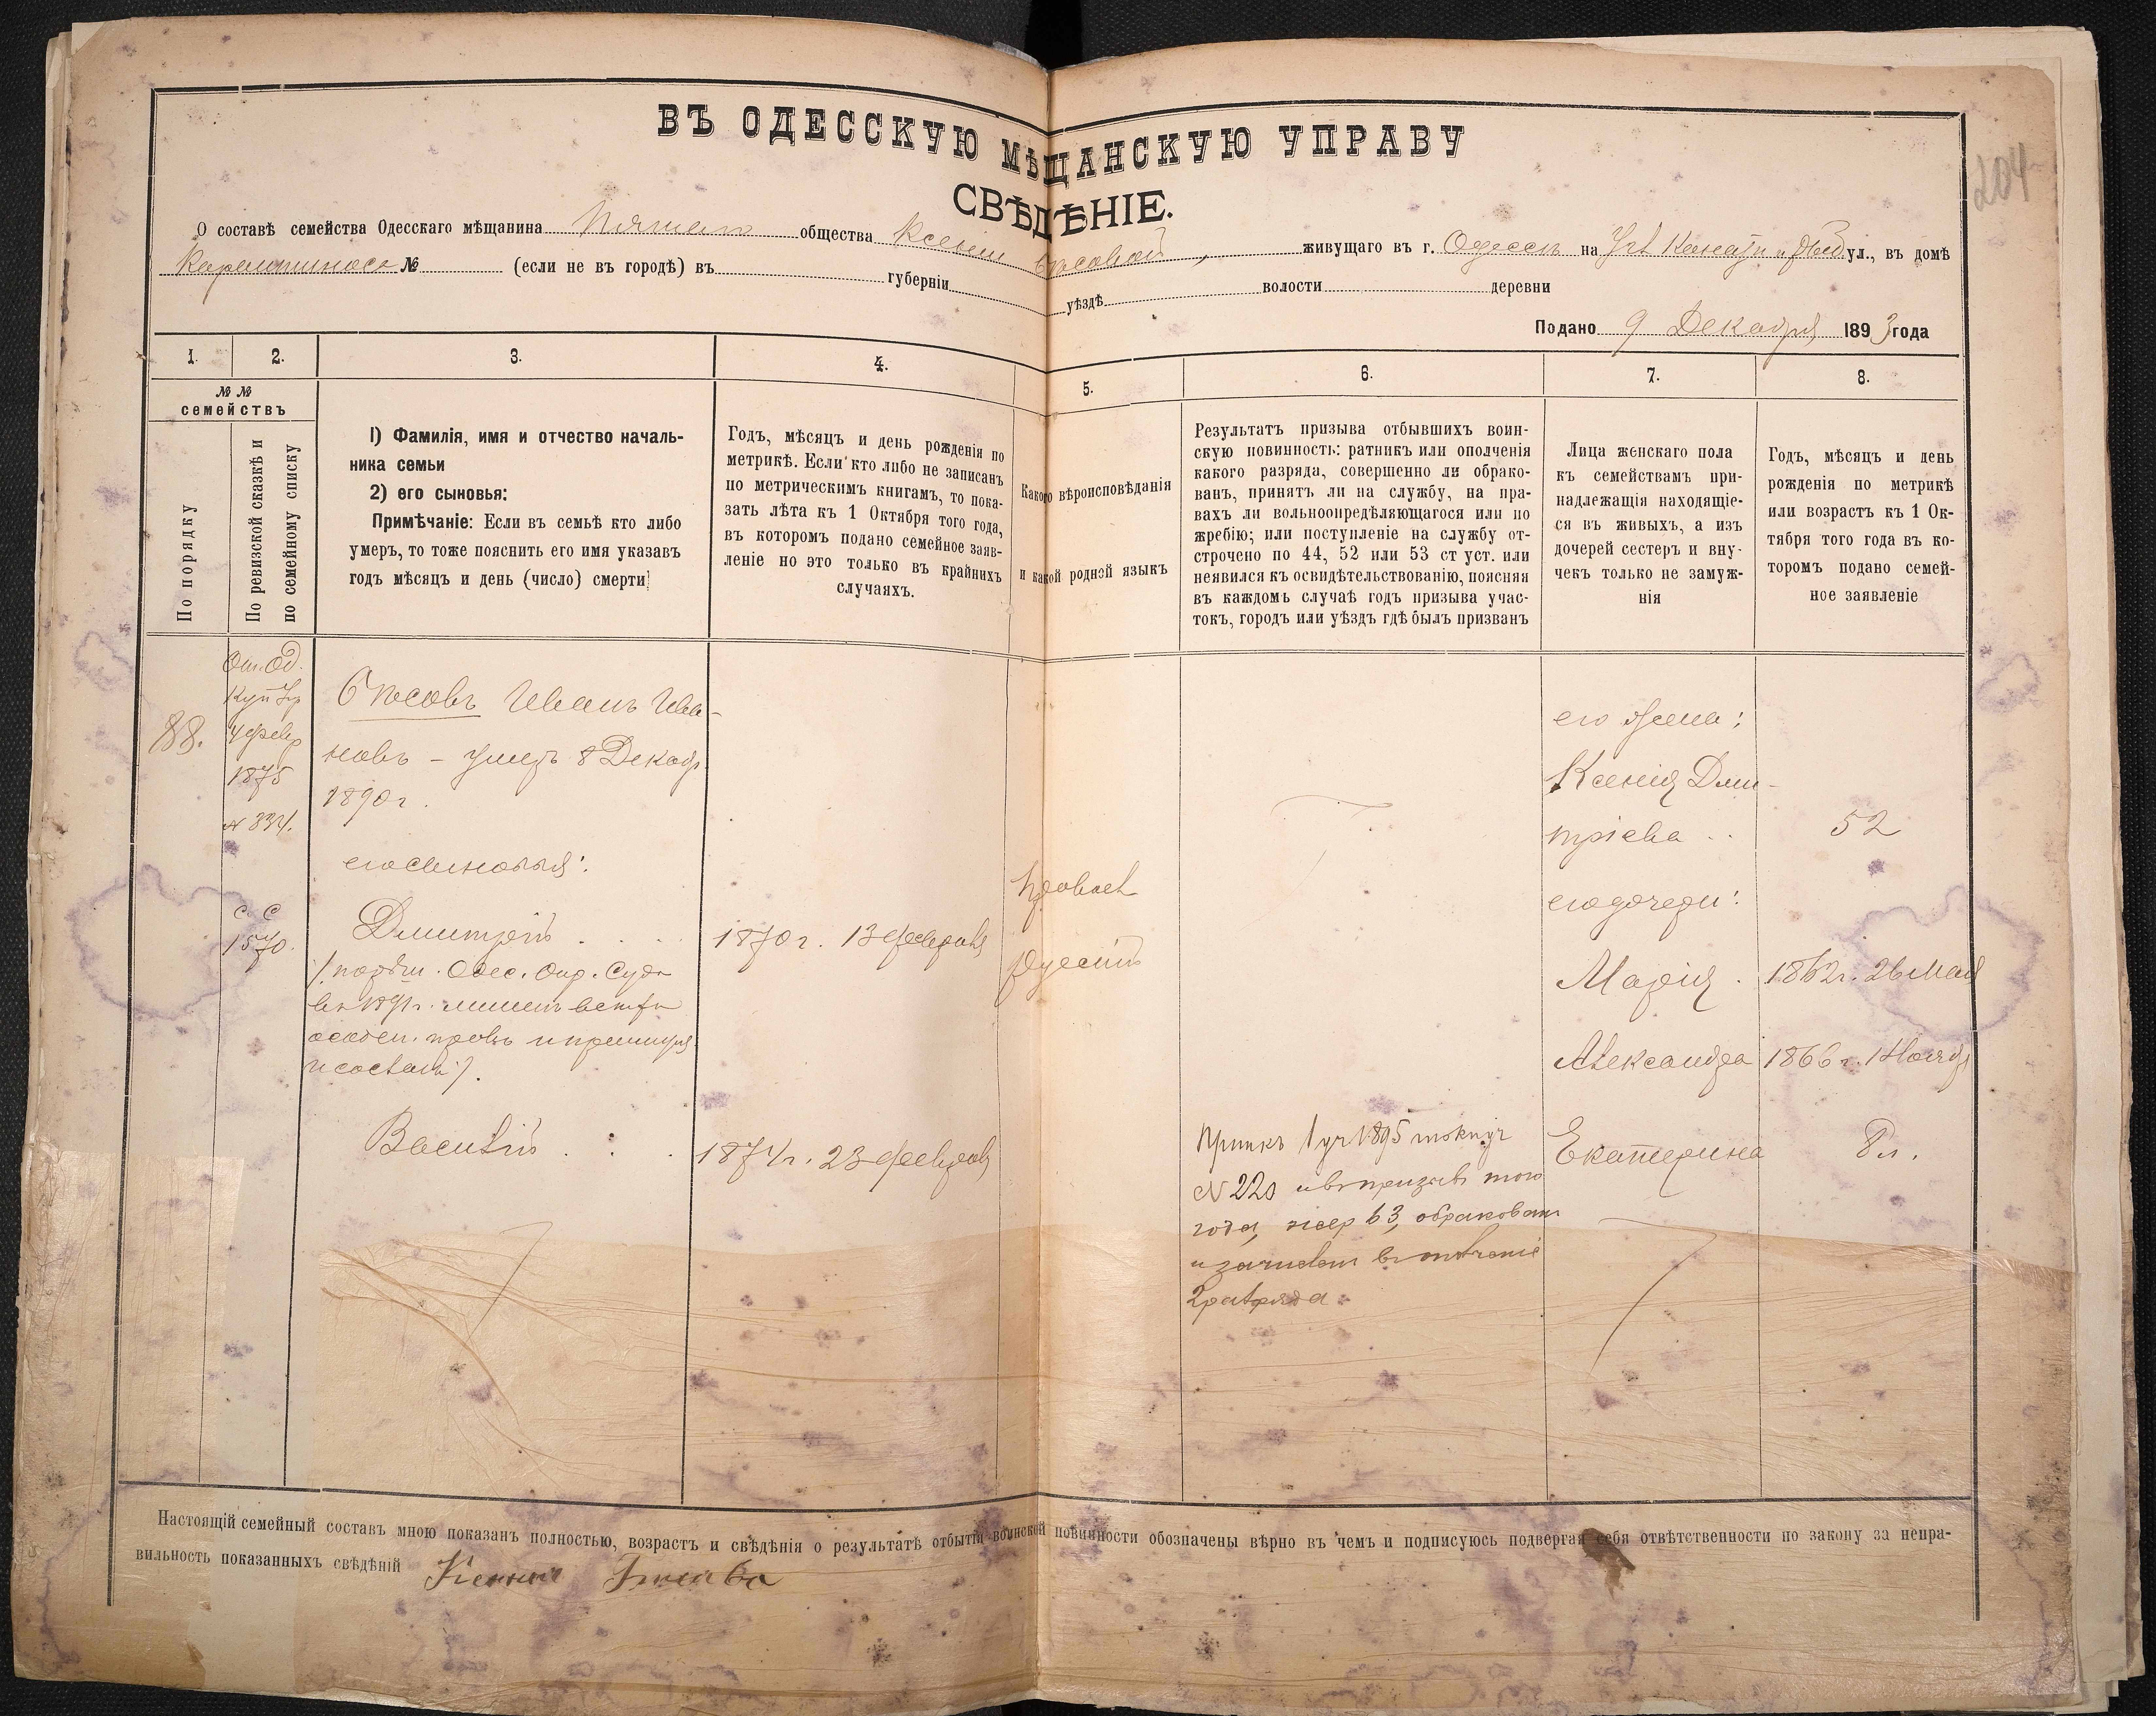 204
ВЪ ОДЕССКУЮ МѢЩАНСКУЮ УПРАВУ
СВѢДѢНІЕ.
О составѣ семейства Одесскаго мѣщанина общества Ксеніи живущаго въ г. Одессѣ на Уг. Канатн и ул., въ домѣ
№ (если не въ городѣ) въ губерніи уѣздѣ волости деревни
Подано 9 Декабря 1893 года
1. 2. 3. 4. 5. 6. 7. 8.
№ №
семействъ
По порядку
По ревизской сказкѣ и
по семейному списку
1) Фамилія, имя и отчество началь-
ника семьи
2) его сыновья:
Примѣчаніе: Если въ семьѣ кто либо
умеръ, то тоже пояснить его имя указавъ
годъ мѣсяцъ и день (число) смерти
Годъ, мѣсяцъ и день рожденія по
метрикѣ. Если кто либо не записанъ
по метрическимъ книгамъ, то пока-
зать лѣта къ 1 Октября того года,
въ которомъ подано семейное заяв-
леніе но это только въ крайнихъ
случаяхъ.
Какого вѣроисповѣданія
и какой родной языкъ
Результатъ призыва отбывшихъ воин-
скую повинность: ратникъ или ополченія
какого разряда, совершенно ли обрако-
ванъ, принятъ ли на службу, на пра-
вахъ ли вольноопредѣляющагося или по
жребію; или поступленіе на службу от-
строчено по 44, 52 или 53 ст уст. или
неявился къ освидѣтельствованію, поясняя
въ каждомъ случаѣ годъ призыва учас-
токъ, городъ или уѣздъ гдѣ былъ призванъ
Лица женскаго пола
къ семействамъ при-
надлежащія находящіе-
ся въ живыхъ, а изъ
дочерей сестеръ и вну-
чекъ только не замуж-
нія
Годъ, мѣсяцъ и день
рожденія по метрикѣ
или возрастъ къ 1 Ок-
тября того года въ ко-
торомъ подано семей-
ное заявленіе
88.
От. Од.
4 февр
1875
№ 334.
с. с
1570.
Иванъ Ива-
новъ – умеръ 8 Декабр.
1890 г.
его сыновья:
Дмитрій . . . .
Одес. Окр. Суда
въ 1891 г. лишенъ всѣхъ
особен. правъ и преимущ.
Василій . : .
1870 г. 13 февраля
1874 г. 23 февраля
Правосл
Русскій
1 уч 1895
№ 220 и въ призывѣ того
года, жер 63, обракованъ
2 разряда
его жена:
Ксенія Дми-
тріева . .
его дочери:
Марія .
Александра
Екатерина
52
1862 г. 26 Мая
1866 г. 1 Ноября
8 л.
Настоящій семейный составъ мною показанъ полностью, возрастъ и свѣдѣнія о результатѣ отбытія воинской повинности обозначены вѣрно въ чемъ и подписуюсь подвергая себя отвѣтственности по закону за непра-
вильность показанныхъ свѣдѣній